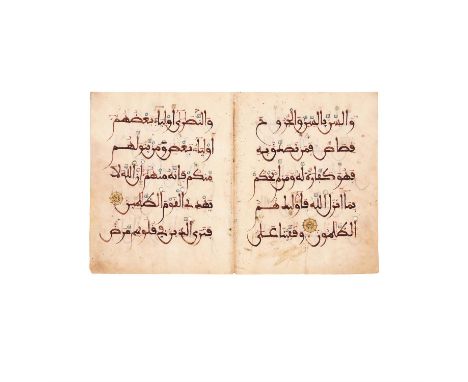 والسن بالسن والجروح
قصاص فمن تصدق به
فهو كفارة له ومن لم يحكم
بما أنزل الله فأولئك هم
الظلمون وقفينا على
والنصرى أولياء بعضهم
أولياء بعض ومن يتولهم
منكم فإنه منهم إن الله لا
يهدي القوم الظلمين
فترى الذين في قلوبهم مرض